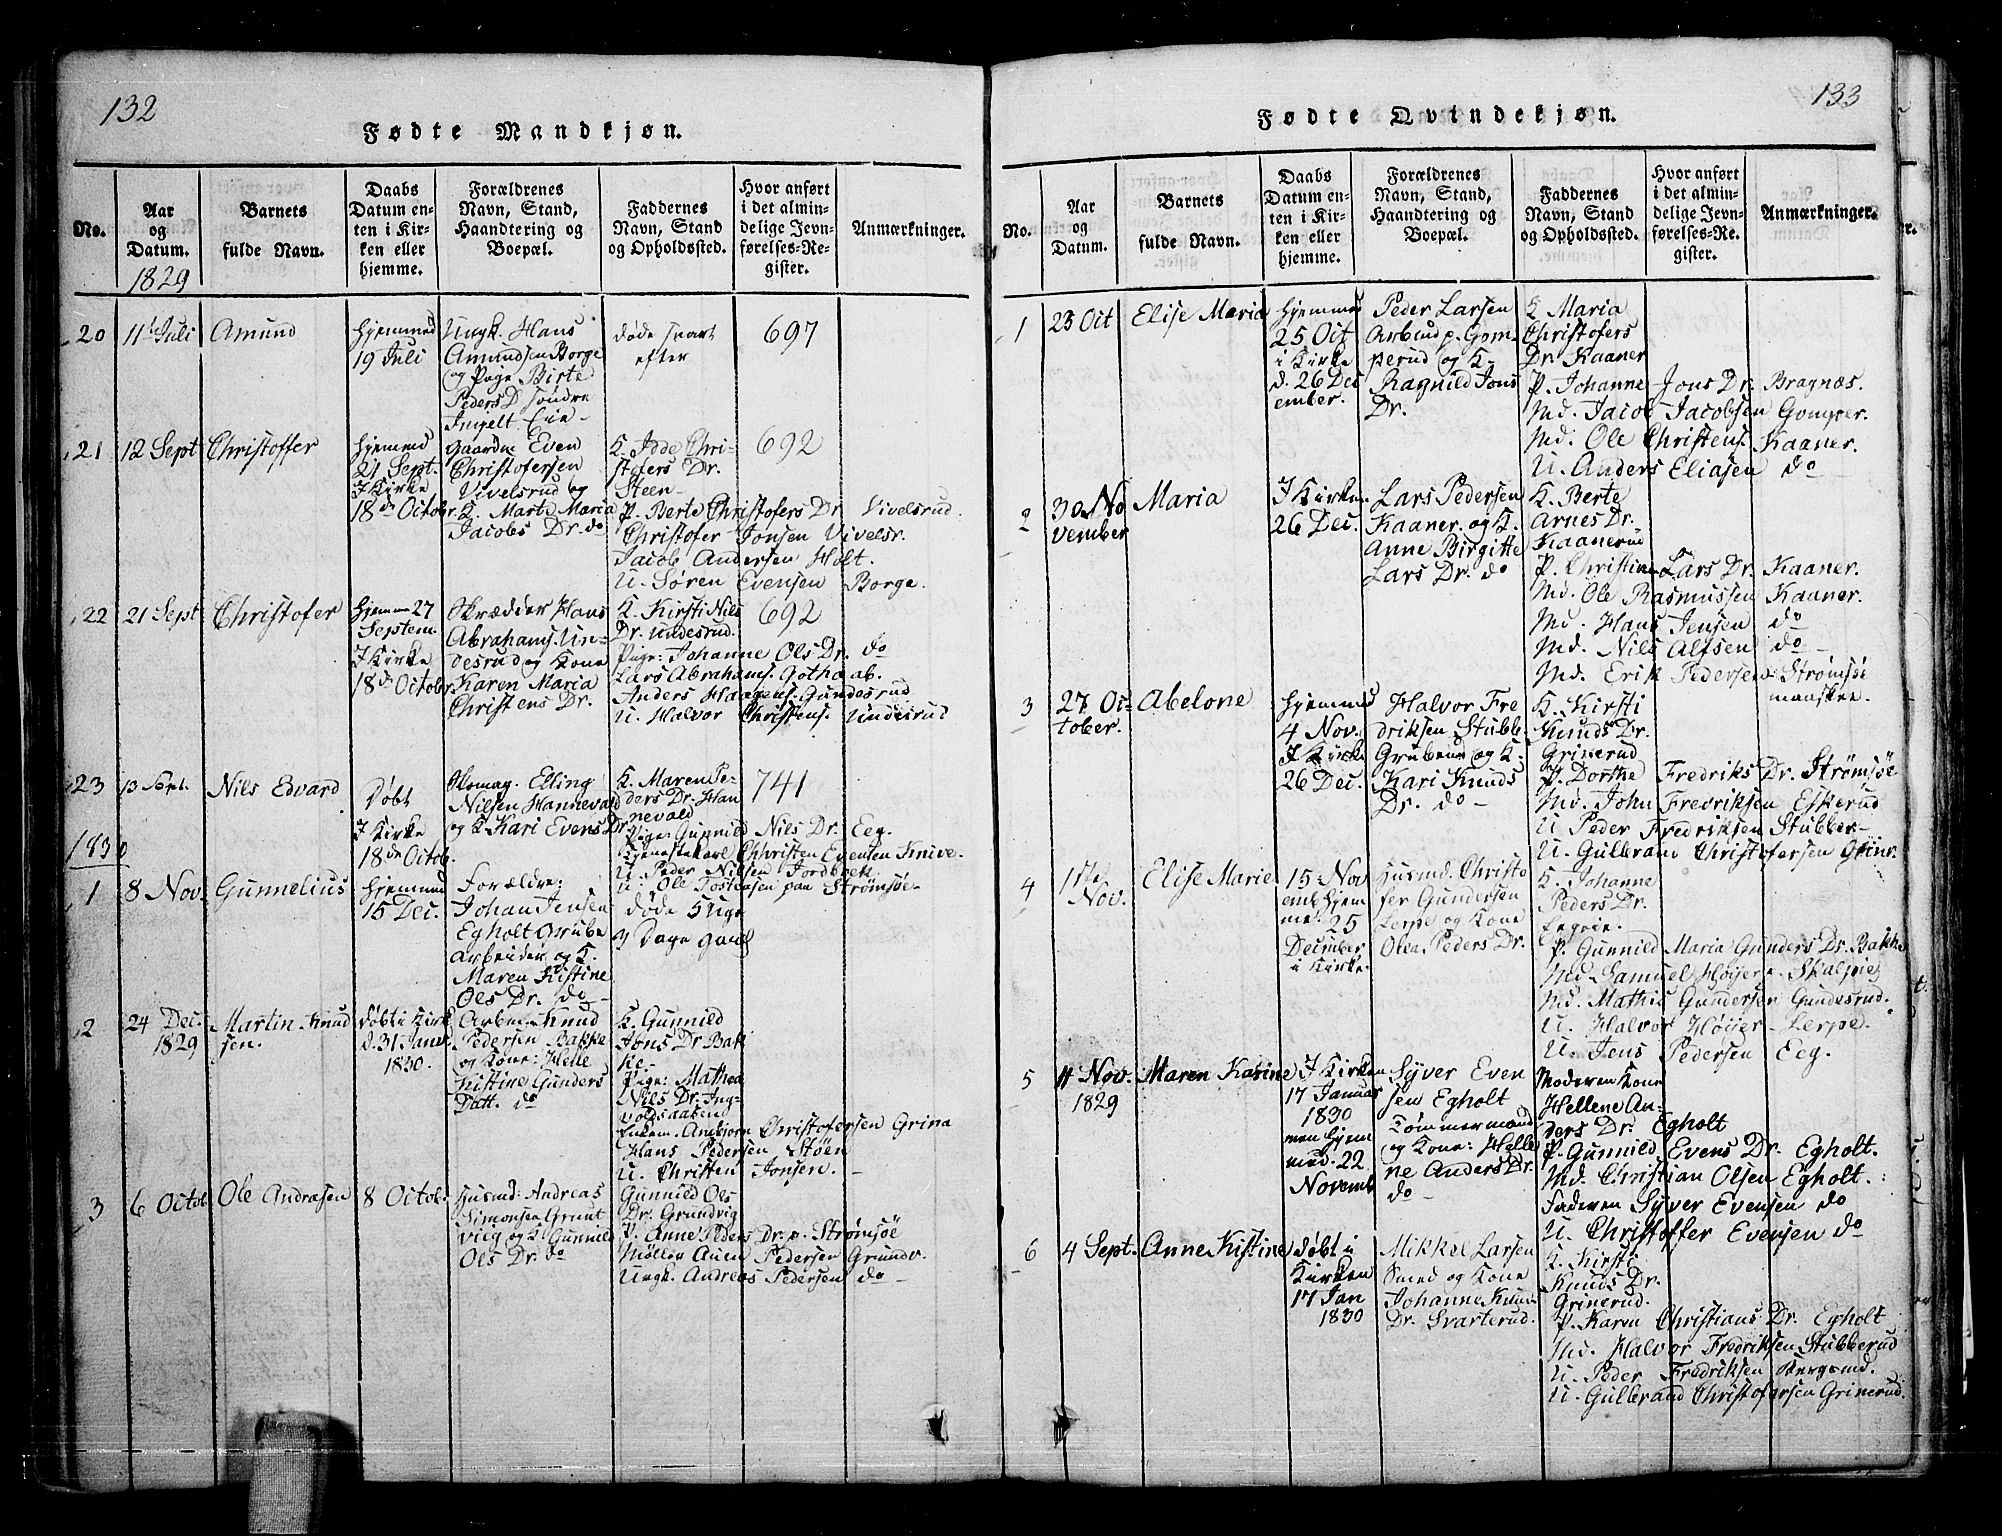 132
Fødte Mandkjøn.
No.
Aar
og
Datum.
1829
Barnets
fulde Navn.
Daabs
Datum en-
ten i Kir-
ken eller
hjemme.
Forældrenes
Navn, Stand,
Haandtering og
Boepæl.
Faddernes
Navn, Stand
og Opholdssted.
Hvor anført
i det almin-
delige Jevn-
førelses-Re-
gister.
Anmærkninger.
20
11t Juli
Amund
hjemmed
19 Juli
Ungk. Hans
Amundsen Borge
og Pige Birte
Peders D Søndre
Ingelt Eie-
døde svart
efter
697
21
12 Sept
Christoffer
hjemmed
21 Sept.
I Kirke
18de Octobr
Gaardm Even
Christofersen
Vivelsrud og
K. Marte Maria
Jacobs Dr. do
K. Idde Chri-
stofers Dr.
Steen-
P. Berte Christofers Dr. Vivelsrud.
Christofer Jonsen Vivelsr.
Jacob Andersen Holt.
U. Søren Evensen Borge.
692
22
21 Sept
Christofer
hjemme 27
Septem.
I Kirke
18de Octobr
Skrædder Hans
Abrahams. Un-
desrud og Kone
Karen Maria
Christens Dr.
K. Kirsti Nils
Dr. Undesrud.
Pige: Johanne Ols Dr. do
Lars Abrahams. Gothaab.
Anders Haagens. Gundesrud
U. Halvor Christens. Undesrud
692
23
13 Sept.
Nils Edvard
Døbt
I Kirke
18de Octob.
Skomag. Elling
Nilsen Hannevald
og K Kari Evens Dr
K. Maren Pe-
ders Dr. Han
nevald
Pige: Gunnild Nils Dr. Eeg.
Tjenestekarl Christen Evensen Knive.
U. Peder Nilsen Jordbræk
U: Ole Tostensen paa Strømsøe-
741
1830
1
8 Nov.
Gunnelius
hjemmed
15 Dec.
Forældre:
Johan Jensen
Egholt Grube
Arbeider og K.
Maren Kistine
Ols Dr. do-
døde 5 Uge
3 Dage gaml
2
24 Dec.
1829
Martin Knud
sen.
døbt i Kirk
d. 31 Janu
1830.
Arbm. Knud
Pedersen Bakke
og Kone: Helle
Kistine Gunders
Datt. do
K. Gunnild
Jons Dr Bak
ke.
Pige: Mathea
Nils Dr. Ing-
voldsaasen
Enkem. Ambjorn Christofersen Grina
Hans Pedersen Støen
U. Christen Jonsen. -
3
6 Octob
Ole Andrasen
8 Octob.
Husmd: Andreas
Simonsen Grunt
vieg og K Gunnild
Ols Dr. do
Gunnild Ols
Dr. Grundvig
P. Anne Peders Dr. p. Strømsøe
Møller Aien Pedersen Grundv.
Ungk. Andreas Pedersen do-
133
Fødte Qvindekjøn.
No.
Aar
og
Datum.
Barnets
fulde Navn.
Daabs
Datum en-
ten i Kir-
ken eller
hjemme.
Forældrenes
Navn, Stand,
Haandtering og
Boepæl.
Faddernes
Navn, Stand
og Opholdssted.
Hvor anført
i det almin-
delige Jevn-
førelses-Re-
gister.
Anmærkninger.
1
23 Oct
Elise Maria
hjemme
25 Oct
i Kirke
d. 26 Dec
ember.
Peder Larsen
Arbeid p. Gom-
perud og K.
Ragnild Jons
Dr.
K Maria
Christofers
Dr. Kaaner
P. Johanne Jons Dr. Bragnæs.
Md. Jacob Jacobsen Gomper.
Md. Ole Christens. Kaaner.
U. Anders Eliasen do
2
30 No
vember
Maria
I Kirke
26 Dec.
Lars Pedersen
Kaaner. og K.
Anne Birgitte
Lars Dr. do
K. Berte
Arnes Dr.
Kaanerud
P. Christine Lars Dr. Kaaner.
Md. Ole Rasmussen Kaaner.
Md. Hans Jensen do
Md. Nils Alfsen do-
Md. Erik Pedersen Strømsøe
mansken.
3
27 Oc-
tober.
Abelone
hjemmed
4 Nov.
I Kirke
26 Dec.
Halvor Fre
driksen Stubb.
Grubene og K.
Kari Knuds
Dr. do-
K. Kirsti
Knuds Dr.
Grinerud
P. Dorthe Fredriks Dr. Strømsøe
Md. John Fredriksen Eskerud
U Peder Fredriksen Stubber-
U. Gulbrand Christofersen Grinr
4
1ste
Nov.
Elise Marie
15 Nov
emb hjem
me. 25
December
i Kirke.
Husmd. Christo
fer Gundersen
Lerpe og Kone
Olea Peders Dr.
K. Johanne
Peders Dr.
P. Gunnild Maria Gunders Dr. Bakke
Md. Samuel Høiere Skalpie
Md. Mathis Gundersen Gundesrud.
U. Halvor Høiser- Lerpe.
U. Jens Pedersen Eeg.
5
11 Nov.
1829
Maren Karine
I Kirken
17 Januar
1830
men hjem
med. 22
Novemb
Syver Even
sen Egholt
Tømmermand
og Kone: Helle
ne Anders Dr.
do-
Moderen Kone
Hellene An-
ders Dr. Egholt
P. Gunnild Evens Dr. Egholt.
Md. Christian Olsen Egholt.
Faderen Syver Evensen do
U. Christoffer Evensen do
6
4 Sept.
Anne Kistine
døbt i
Kirken
17 Jan
1830
Mikkel Larsen
Smed og Kone
Johanne Knuds
Dr. Svarterud.
K. Kirsti
Knuds Dr.
Grinerud.
P. Karen Christians Dr. Egholt
Md. Halvor Fredriksen Stubberud
U. Peder Fredriksen Bergsmd.
U. Gulbrand Christofersen Grinerud.